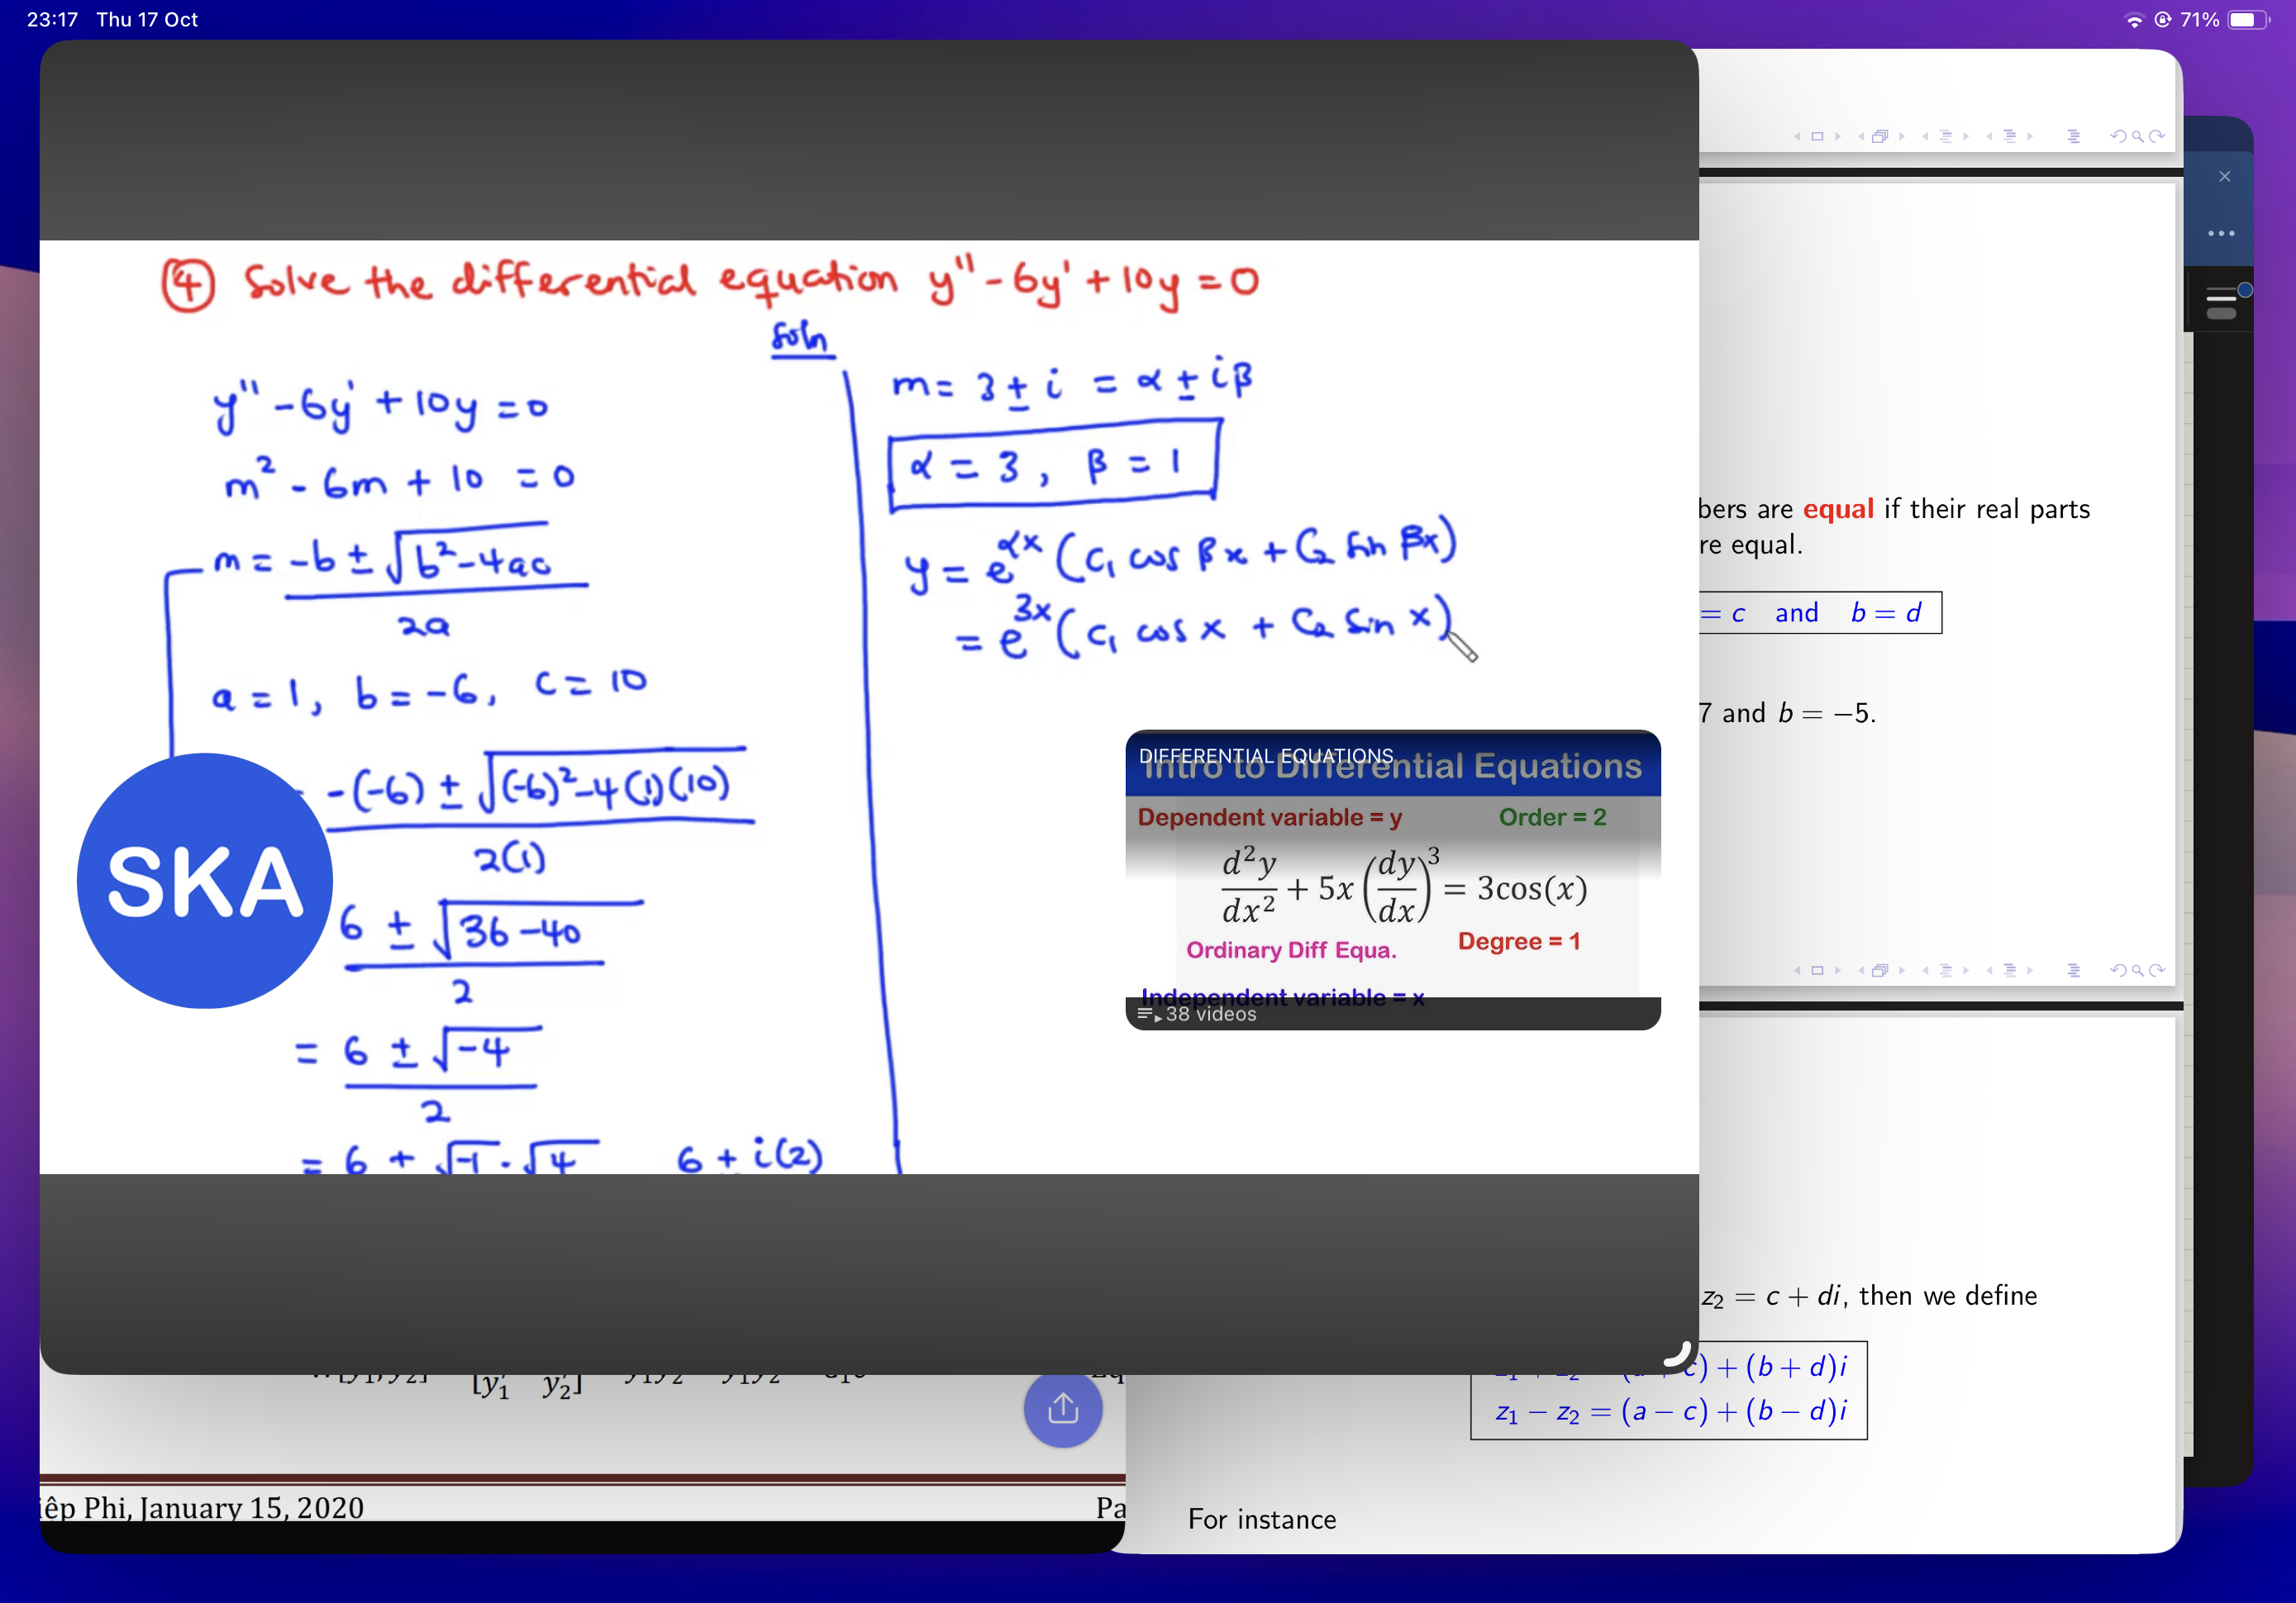 23:17 Thu 17 Oct
71%
④ Solve the differential equation y'' - 6y' + 10y = 0
Soln
y'' - 6y' + 10y = 0
m² - 6m + 10 = 0
m = -b ± √b²-4ac
2a
a = 1, b = -6, c = 10
-(-6) ± √(-6)²-4(1)(10)
2(1)
6 ± √36-40
2
= 6 ± √-4
2
= 6 ± √-1 · √4 6 ± i(2)
m = 3 ± i = α ± iβ
α = 3, β = 1
y = e^αx (C₁ cos βx + C₂ Sin βx)
= e^3x (C₁ cos x + C₂ Sin x)
SKA
DIFFERENTIAL EQUATIONS
Intro to Differential Equations
Dependent variable = y Order = 2
d²y/dx² + 5x (dy/dx)³ = 3cos(x)
Ordinary Diff Equa. Degree = 1
Independent variable = x
38 videos
bers are equal if their real parts
re equal.
= c and b = d
7 and b = −5.
z₂ = c + di, then we define
c) + (b + d)i
z₁ − z₂ = (a − c) + (b − d)i
For instance
[y₁' y₂']
iệp Phi, January 15, 2020
Pa